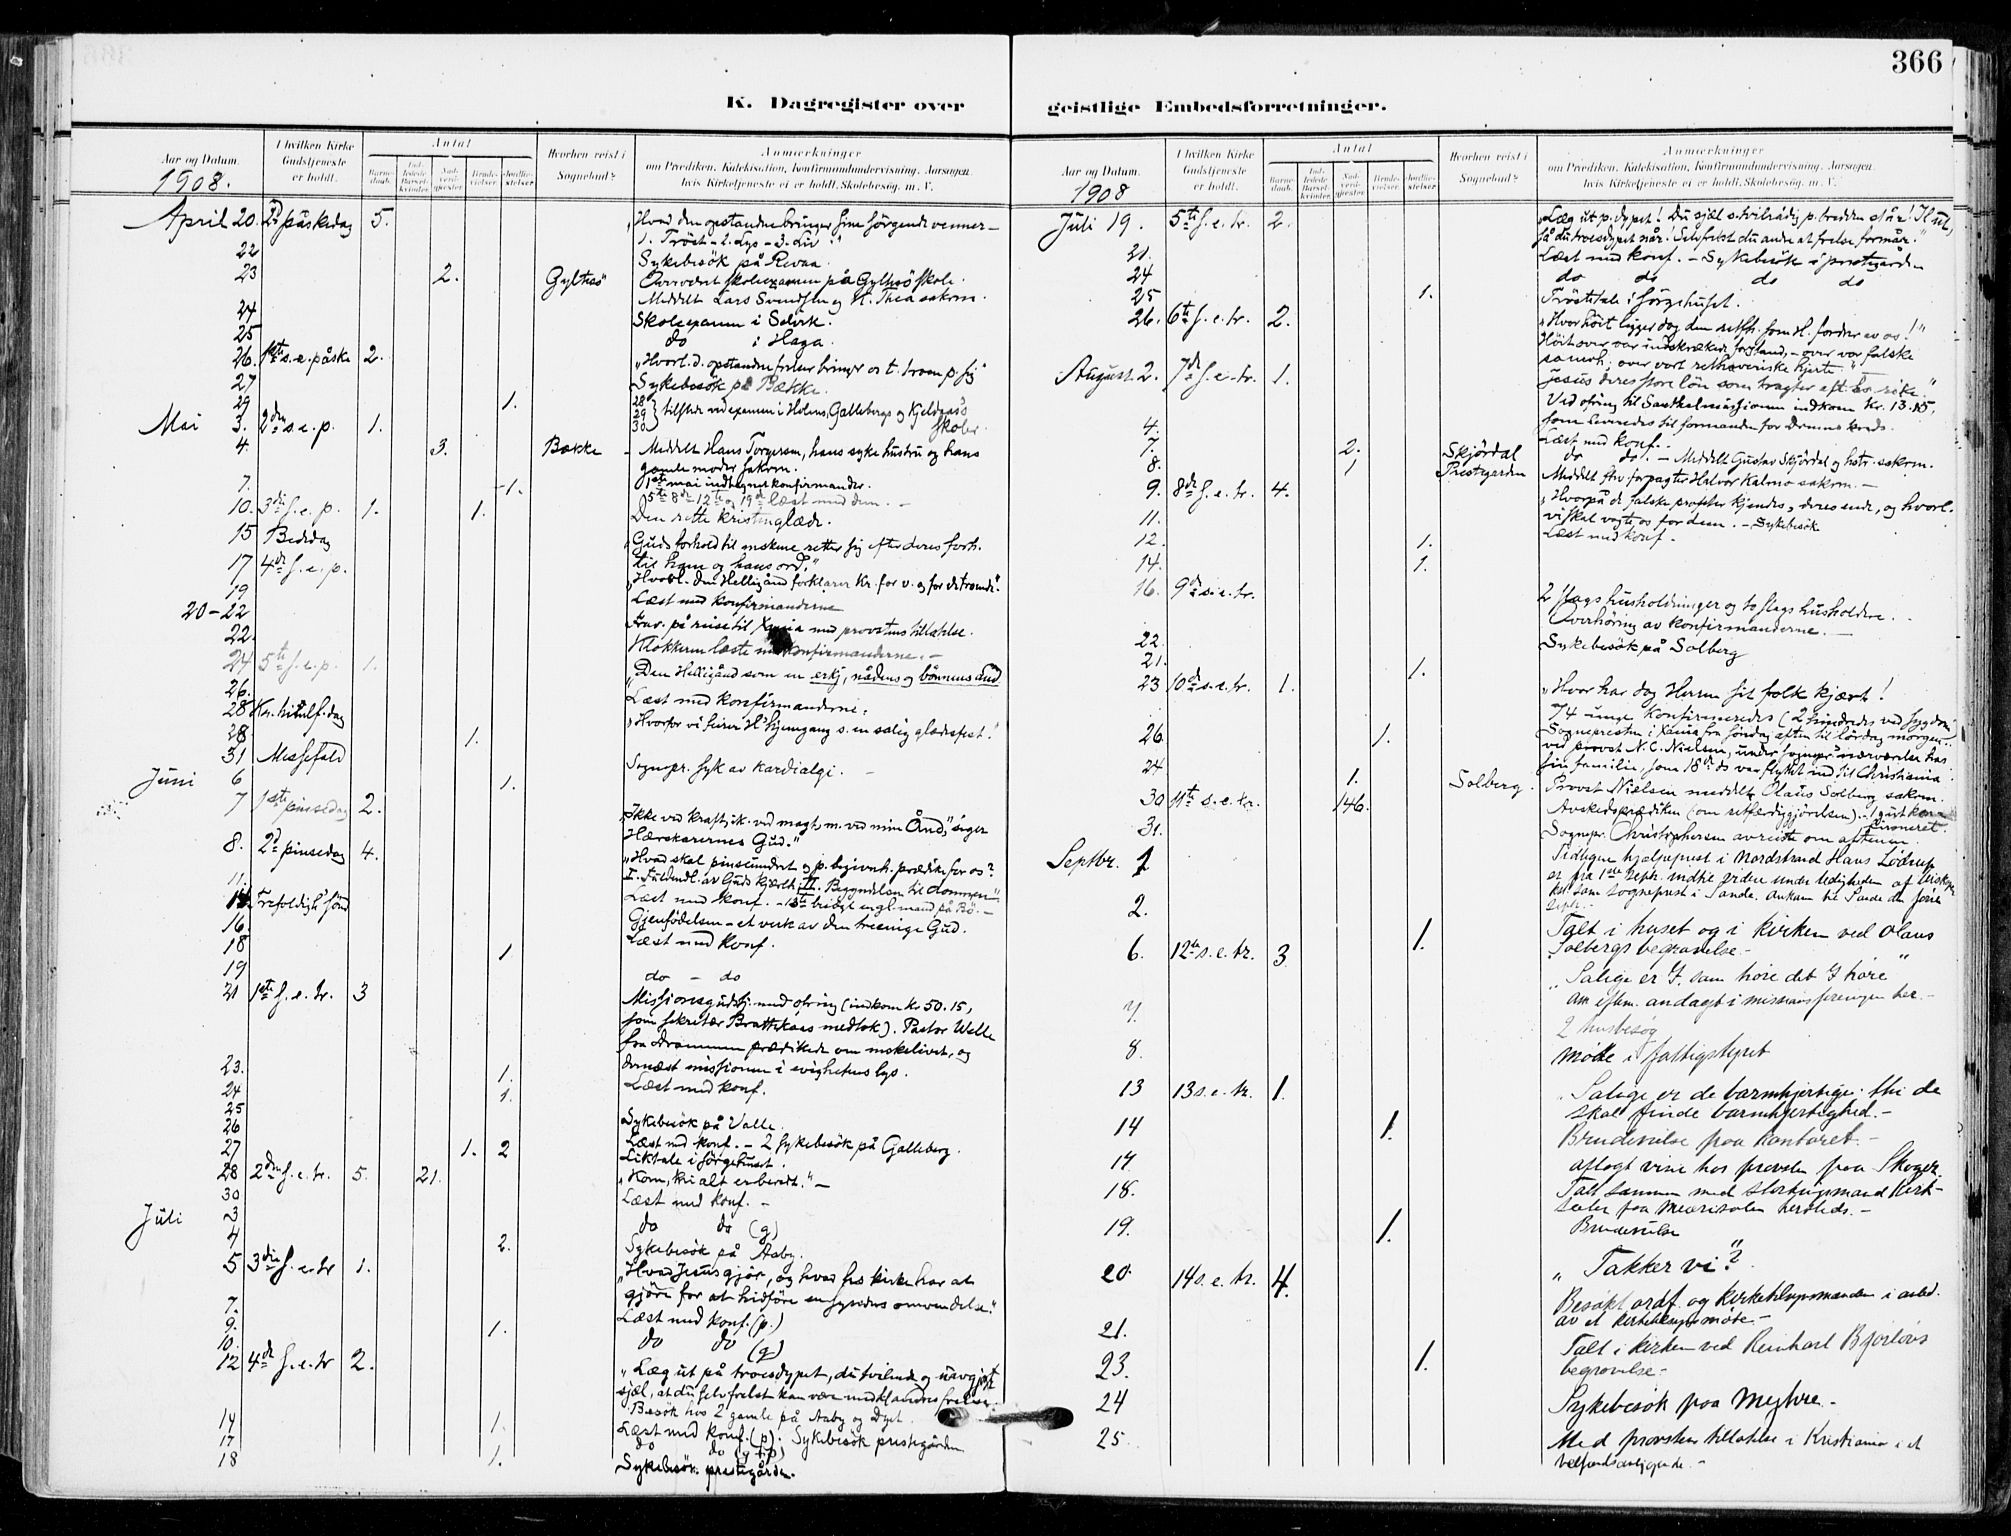 366
K. Dagregister over
Aar og Datum.
1908.
I hvilken Kirke Gudstjeneste er holdt.
Antal
Barne-daab.
Ind-ledede Barsel-kvinder.
Nad-verd-gjester
Brude-vielser
Jordfæ-stelser
Hvorhen reist i Sognebud?
Anmærkninger
om Prædiken, Katekisation, Konfirmandundervisning, Aarsagen,
hvis Kirketjeneste ei er holdt, Skolebesøg, m. V.
April 20. 2d påskedag 5. „Hvad den opstandne bringer sine sörgende venner –
1. Tröst – 2. Lys – 3. Liv."
22 Sykebesök på Revaa.
23 2. Gyltesö Overværet skoleexamen på Gyltesö skole.
Meddelt Lars Svendsen og H. Thea sakrm.
24 Skoleexamen i Selvik.
25 do i Haga.
26. 1ste s.e. påske 2. „Hvorl. d. opstandne frelser bringer os t. troen p. sig"
27 Sykebesök på Bække.
29 1. 28 29 30 } tilstede ved examen i Holms, Galleberg og Kjeldaas's
skoler.
Mai 3. 2den s.e.p. 1.
4. 3. Bække – Meddelt Hans Torgersen, hans syke hustru og hans
gamle moder sakrm.
7. 1. 1ste mai indtegnet konfirmander.
5te 8de 12te og 19de læst med dem. –
10. 3die s.e.p. 1. 1. Den rette kristenglæde.
15 Bededag „Guds forhold til mskene retter sig efter deres forh.
til ham og hans ord."
17 4de s.e.p. „Hvorl. den Helligånd forklarer Kr. for v. og for de troende."
19 Læst med konfirmanderne
20–22 Frav. på reise til Xania med provstens tilladelse.
22. Klokkeren læste med konfirmanderne. –
24 5te s.e.p. 1. „Den Helligånd som en erkj, nådens og bönnens ånd
26. Læst med konfirmanderne.
28 Kr. himlf. dag „Hvorfor vi feirer H's hjemgang s. en salig glædesfest."
28 1.
31 Messefald Sognepr. syk av kardialgi. –
Juni 6 1.
7 1ste pinsedag 2. „Ikke ved kraft, ik. ved magt, m. ved min Ånd," siger
Hærskarernes Gud."
8. 2d pinsedag 4. „Hvad skal pinseundret og p. begivenh. prædike for os?
11. Læst med konf.
14. Trefoldigh. sönd Gjenfödelsen – et verk av den treenige Gud.
16. Læst med konf.
18 1
19 do – do
21 1ste s.e. tr. 3 Missionsgudstj. med ofring (indkom kr 50.15,
som sekretær Brattekaas medtok). Pastor Welle
fra Drammen prædikede om mskelivet, og
dernæst missionen i evighetens lys.
23. 1. Læst med konf.
24 1.
25 Sykebesök på Valle.
26 Læst md konf. – 2 sykebesök på Galleberg.
27 1. 2 Liktale i sörgehuset.
28 2den s.e. tr. 5. 21. „Kom, ti alt er beredt." –
30 Læst med konf. –
Juli 3 do do (g)
4 2. Sykebesök på Aaby.
5 3die s.e. tr 1. „Hvad Jesus gjör, og hvad hs kirke har at
gjöre for at hidföre en synders omvendelse."
7. Læst med konf. (p.)
9. 1.
10. do do (g)
12 4de s.e. tr 2. „Læg ut på troesdypet, du tvilende og uavgjorte
sjæl, at du selv frelst kan være med til andres frelse.
Besök hos 2 gamle på Aaby og Dyet.
14 1. Læst med konf. (p). Sykebesök prestegården
17 do do (g + p)
18 1. Sykebesök prestegården.
geistlige Embedsforretninger.
Aar og Datum.
1908
I hvilken Kirke Gudstjeneste er holdt.
Antal
Barne-daab.
Ind-ledede Barsel-kvinder.
Nad-verd-gjester
Brude-vielser
Jordfæ-stelser
Hvorhen reist i Sognebud?
Anmærkninger
om Prædiken, Katekisation, Konfirmandundervisning, Aarsagen,
hvis Kirketjeneste ei er holdt, Skolebesøg, m. V.
Juli 19. 5te s.e. tr. 2. „Læg ut p. dypet! Du sjæl s. tvilrådig p. bredden står! Il ut,
så du troesdypet når! Selv frelst du andre at frelse formår."
21. Læst med konf. – Sykebesök i prestegården
24 do do do do
25 1. Tröstetale i sörgehuset.
26. 6te s.e. tr. 2. „Hvor höit ligger dog den retfh. som H. fordrer av os!"
Höit over vor indskrænkede forstand, – over vor falske
samvh., over vort rethaveriske hjerte."
August 2. 7de s.e. tr. 1. Jesus deres store lön som tragter eft. Gs. rike."
Ved ofring til Santhalmissionen indkom Kr. 13.15,
som leveredes til formanden for Dramns kreds.
4. Læst med konf. –
7. 2. Skjördal do do. – Meddelt Gustav Skjördal og hstr. sakrm.
8. 1 Prestegarden Meddelt fhv. forpagter Halvor Kalmo sakrm. –
9. 8de s.e. tr. 4. „Hvorpå de falske profeter kjendes, deres ende, og hvorl.
vi skal vogte os for dem. – Sykebesök
11. Læst med konf. –
12. 1.
14. 1.
16. 9de s.e. tr. 2 slags husholdninger og to slags husholdere.
Overhöring av konfirmanderne. –
22. Sykebesök på Solberg
21. 1.
23 10de s.e. tr. 1. „Hvor har dog Herren sit folk kjært!
74 unge konfirmeredes (2 hindredes ved sygdom)
26 1. Sognepresten i Xania fra söndag aften til lördag morgen
24 1. Solberg. Provst Nielsen meddelte Olaus Solberg sakrm.
30 11te s.e. tr. 146. Avskedsprædiken (om retfærdiggjörelsen).
31. Sognepr. Christophersen avreiste om aftenen.
Septbr. 1 Tidligere hjelpeprest i Nordstrand Hans Lödrup
er fra 1ste septr. indtil videre under ledigheden af beskik-
ket som sogneprest i Sande. Ankom til Sande den förie
septr. –
2. Talt i huset og i kirken ved Olaus
Solbergs begravelse –
6. 12te s.e. tr. 3 1. „Salige er I som höre det I höre"
Om efterm. andagt i missionsforeningen her. –
7. 2 husbesög
8. Möte i fattigstyret
13 13 s.e. tr. 1. „Salige er de barmhjertige: thi de
skal finde barmhjertighed. –
14 1. Brudevielse paa kontoret. –
17. Aflagt visit hos provsten paa Skoger.
18. Talt sammen med
19. 1. Brudevielse
20. 14 s.e. tr. 4. „Takker vi?"
Besökt ordf. og kirketilsynsmanden i anled.
av et kirketilsynsmöte. –
21.
23. 1. Talt i kirken ved Reinhart
begravelse –
24 Sykebesök paa
25. Med provstens tilladelse i Kristiania i et
velferdsanliggende. –